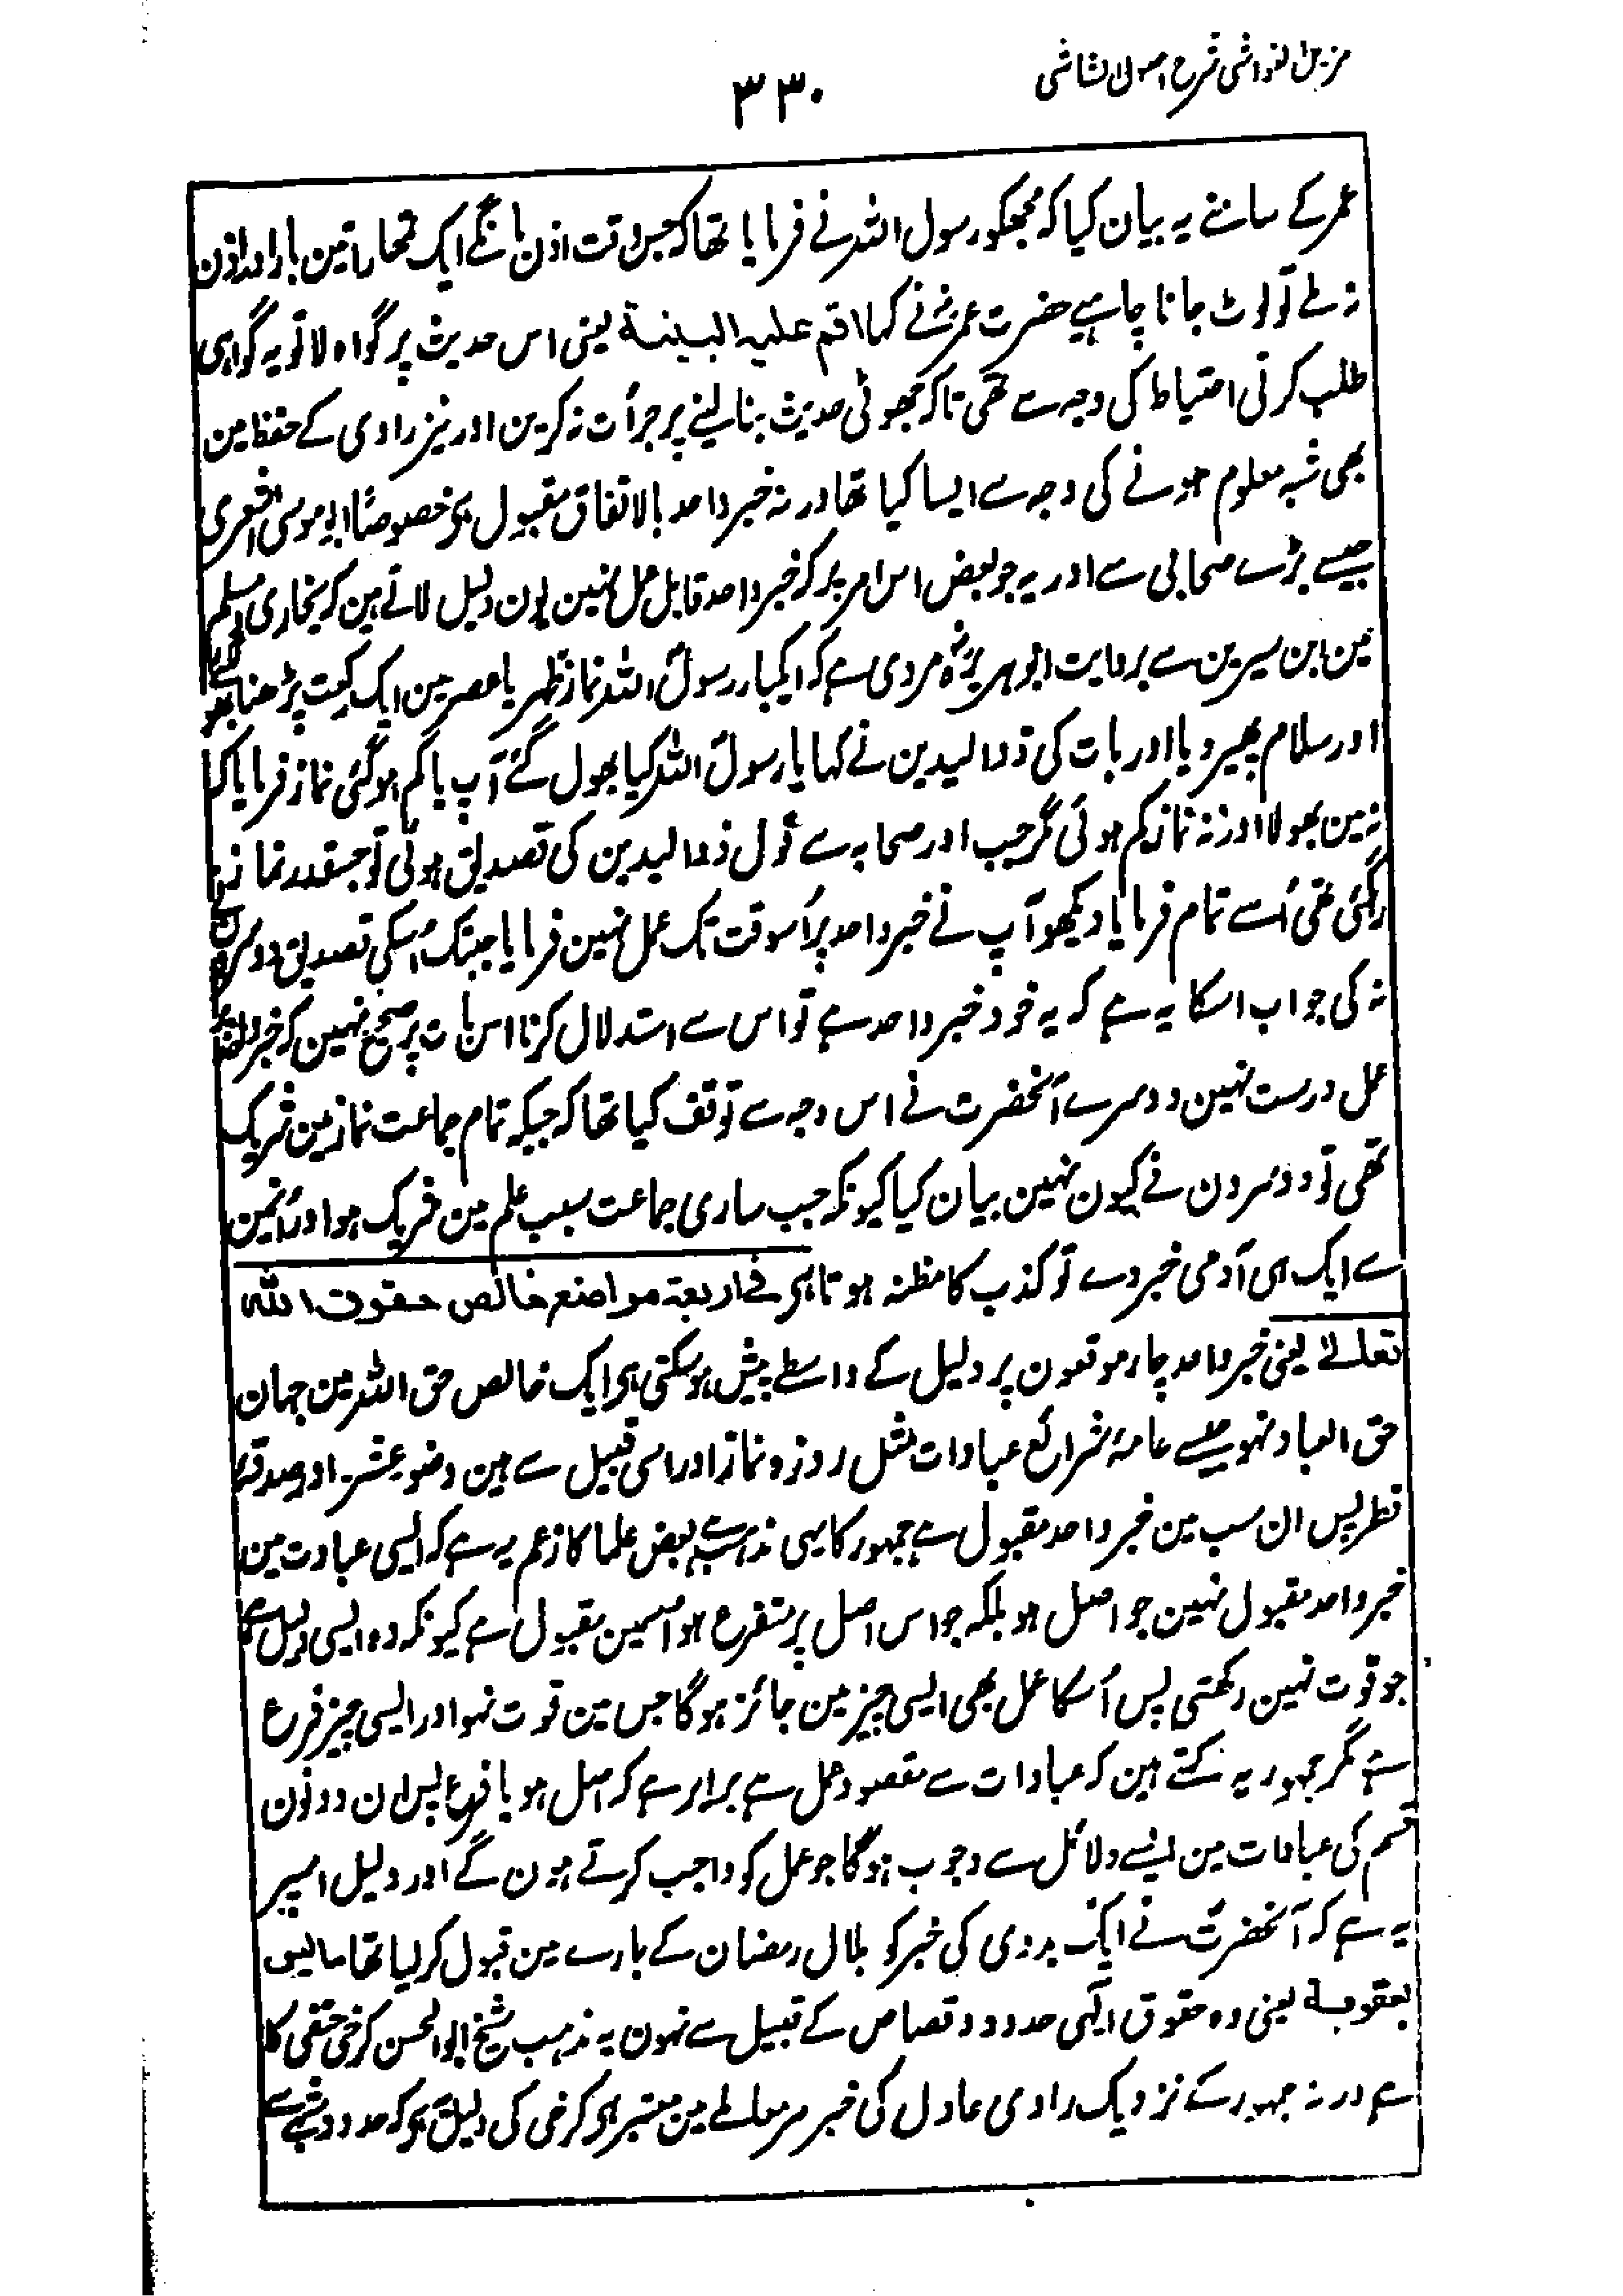 مزیل الغواشی شرح اصول الشاشی
۳۳۰
عمر کے سامنے یہ بیان کیا کہ مجھکو رسول اللہ نے فرمایا تھا کہ جس وقت اذن مانگے ایک تمھارا تین بار اور اذن
نہ ملے تو لوٹ جانا چاہیے حضرت عمرؓ نے کہا اقم علیہ البینة یعنی اس حدیث پر گواہ لا تو یہ گواہی
طلب کرنی احتیاط کی وجہ سے تھی تاکہ جھوٹی حدیث بنا لینے پر جرأت نہ کرین اور نیز راوی کے حفظ مین
بھی شبہ معلوم ہونے کی وجہ سے ایسا کیا تھا ورنہ خبر واحد بالاتفاق مقبول ہی خصوصًا ابو موسیٰ اشعری
جیسے بڑے صحابی سے اور یہ جو بعض اس امر پر کہ خبر واحد قابل عمل نہین یون دلیل لاتے ہین کہ بخاری و مسلم
مین ابن سیرین سے بروایت ابو ہریرہؓ مروی ہے کہ ایکبار رسول اللہ نماز ظہر یا عصر مین ایک رکعت پڑھنا بھول گئے
اور سلام پھیر دیا اور بات کی ذوالیدین نے کہا یا رسول اللہ کیا بھول گئے آپ یا کم ہوگئی نماز فرمایا کہ
نہ مین بھولا اور نہ نماز کم ہوئی مگر جب اور صحابہ سے قول ذوالیدین کی تصدیق ہوئی تو جسقدر نماز
رہگئی تھی اُسے تمام فرمایا دیکھو آپ نے خبر واحد پر اُسوقت تک عمل نہین فرمایا جبتک اُسکی تصدیق دوسرون
نہ کی جواب اسکا یہ ہے کہ یہ خود خبر واحد ہے تو اس سے استدلال کرنا اس بات پر صحیح نہین کہ خبر واحد
عمل درست نہین دوسرے آنحضرت نے اس وجہ سے توقف کیا تھا کہ جبکہ تمام جماعت نماز مین شریک
تھی تو دوسرون نے کیون نہین بیان کیا کیونکہ جب ساری جماعت سبب علم مین شریک ہو اور اُنمین
سے ایک ہی آدمی خبر دے تو کذب کا مظنہ ہوتا ہی فی اربعة مواضع خالص حقوق اللہ
تعالےٰ یعنی خبر واحد چار موقعون پر دلیل کے واسطے پیش ہوسکتی ہی ایک خالص حق اللہ مین جہان
حق العباد نہو جیسے عامۂ شرائع عبادات مثل روزہ و نماز اور اسی قبیل سے ہین وضو عشر اور صدقۂ
فطر پس ان سب مین خبر واحد مقبول ہے جمہور کا یہی مذہب ہے بعض علما کا زعم یہ ہے کہ ایسی عبادت مین
خبر واحد مقبول نہین جو اصل ہو بلکہ جو اس اصل پر متفرع ہو اُسمین مقبول ہے کیونکہ وہ ایسی دلیل ہے
جو قوت نہین رکھتی پس اُسکا عمل بھی ایسی چیز مین جائز ہوگا جس مین قوت نہو اور ایسی چیز فرع
ہے مگر جمہور یہ کہتے ہین کہ عبادات سے مقصود عمل ہے برابر ہے کہ اصل ہو یا فرع پس ان دونون
قسم کی عبادات مین ایسے دلائل سے وجوب ہوگا جو عمل کو واجب کرتے ہون گے اور دلیل اسپر
یہ ہے کہ آنحضرت نے ایک بدوی کی خبر کو ہلال رمضان کے بارے مین قبول کر لیا تھا ما لیس
بعقوبة یعنی وہ حقوق الٰہی حدود و قصاص کے قبیل سے نہون یہ مذہب شیخ ابوالحسن کرخی حنفی کا
ہے ورنہ جمہور کے نزدیک راوی عادل کی خبر ہر معاملے مین معتبر ہی کرخی کی دلیل یہ ہی کہ حدود شبہے سے